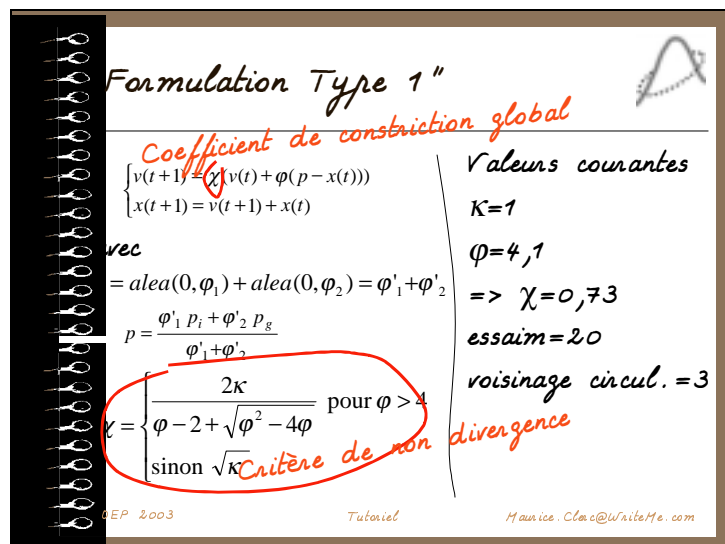 Formulation Type 1"
Coefficient de constriction global
v(t+1) = χ(v(t) + φ(p − x(t)))
x(t+1) = v(t+1) + x(t)
vec
= alea(0, φ₁) + alea(0, φ₂) = φ'₁+φ'₂
p = (φ'₁ pᵢ + φ'₂ p_g) / (φ'₁+φ'₂)
χ = { 2κ / (φ − 2 + √(φ² − 4φ)) pour φ > 4
sinon √κ
Critère de non divergence
Valeurs courantes
κ=1
φ=4,1
=> χ=0,73
essaim=20
voisinage circul.=3
OEP 2003
Tutoriel
Maurice.Clerc@WriteMe.com